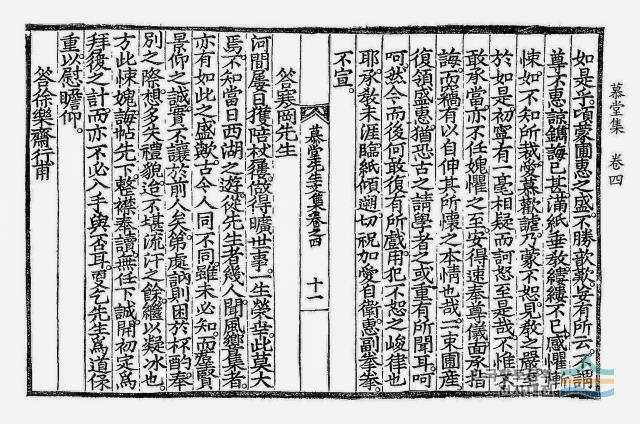 慕堂集 卷四
如是乎。頃蒙圃惠之盛。不勝歆歎。妄有所云。不謂
尊丈惠諒鐫誨。已甚滿紙垂敎。縷縷不已。感懼慚
悚。如不知所裁。愛慕歡謔。乃蒙不恕。見敎之嚴。
於如是。初寧有一毫相疑而訶怒至是哉。不惟
敢承當。亦不任媿懼之至。安得速奉尊儀面承指
誨。而竊有以自伸其所懷之本情也哉。一束圃產
復領盛惠。猶恐古之請學者之或重有所聞耳。呵
呵。然今而後何敢復有所戲。用犯不恕之峻律也
耶。承敎未涯。臨紙傾遡。切祝加愛自衛。惠副拳拳。
不宣。
慕堂先生文集卷之四 十一
答寒岡先生
河閒屢日。獲陪杖屨。做得曠世事。一生榮幸。此莫大
焉。不知當日西湖之遊。從先生者幾人。聞風嚮集者。
亦有如此之盛歟。古今人同不同。雖未必知。而麗賢
景仰之誠。實不讓於前人矣。弟處訥則困於杯酌。奉
別之際。想多失禮貌。追不堪流汗之餘。繼以凝氷也。
方此悚媿。誨帖先下。整襟奉讀。無任下誠。開初定爲
拜後之計。而亦不必入手與否耳。更乞先生爲道保
重。以慰瞻仰。
答徐樂齋行甫